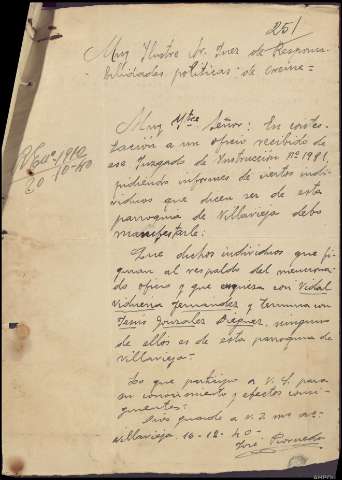 251
Muy Ilustre Sr. Juez de Responsa-
bilidades políticas: de Orense=
10-40
Muy Iltre Señor: En contes-
tación a un oficio recibido de
ese Juzgado de Instrucción Nº 1981,
pidiendo informes de ciertos indi-
viduos que dicen ser de esta
parroquia de Villavieja debo
manifestarle:
Que dichos individuos que fi-
guran al respaldo del menciona-
do oficio y que empieza con Vidal
Fernandez y termina con
Jesús Gonzalez Dieguez, ninguno
de ellos es de esta parroquia de
Villavieja=
Lo que participo a V. S. para
su conocimiento y efectos consi-
guientes:
Dios guarde a V. S. ms as.
Villavieja 16-12-40=
José